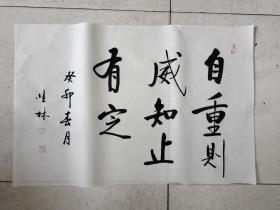 自重則
威知止
有定
癸卯春月